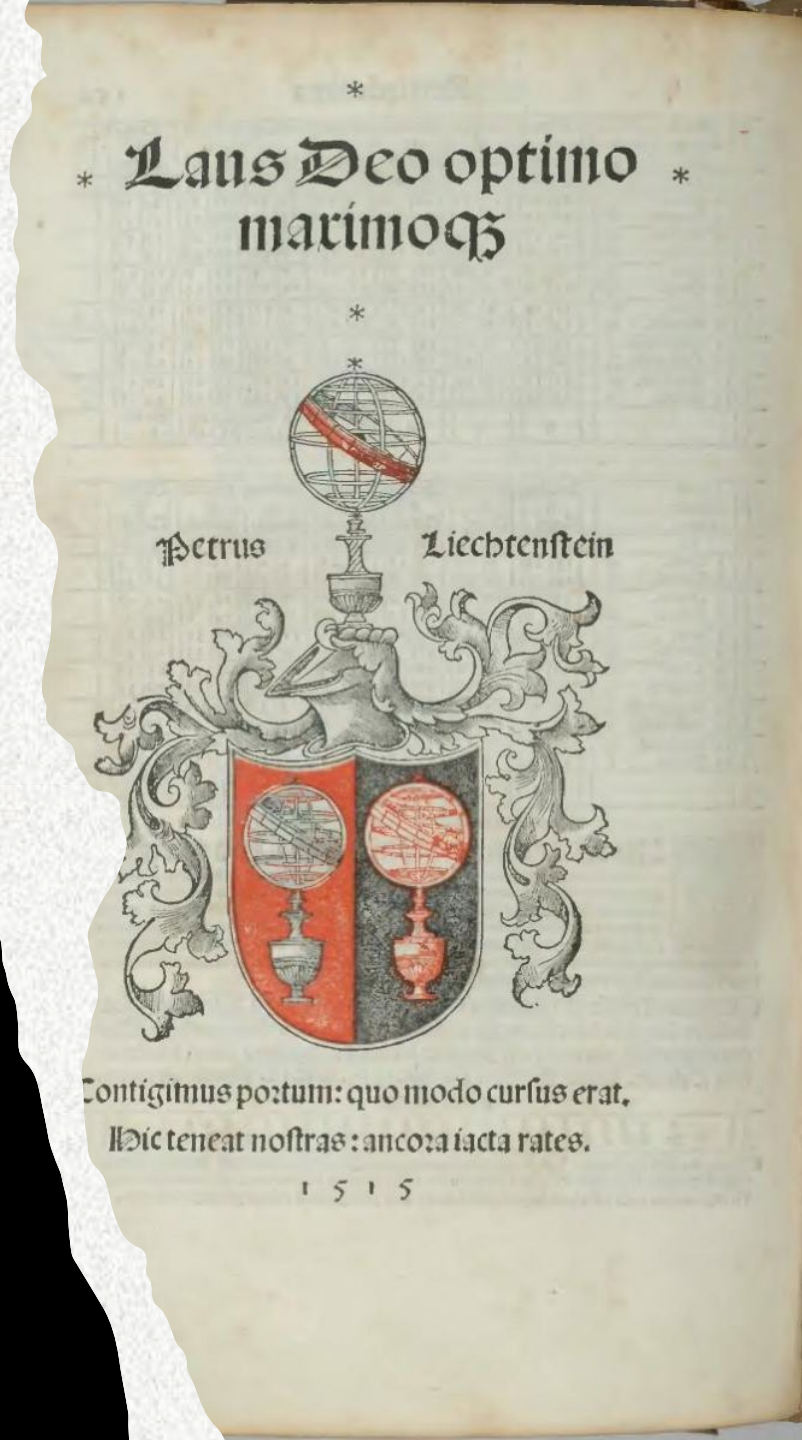 *
* Laus Deo optimo *
maximoqꝫ
*
*
Petrus Liechtenſtein
Contigimus poꝛtum: quo modo curſus erat.
Hic teneat noſtras: ancoꝛa iacta rates.
1515